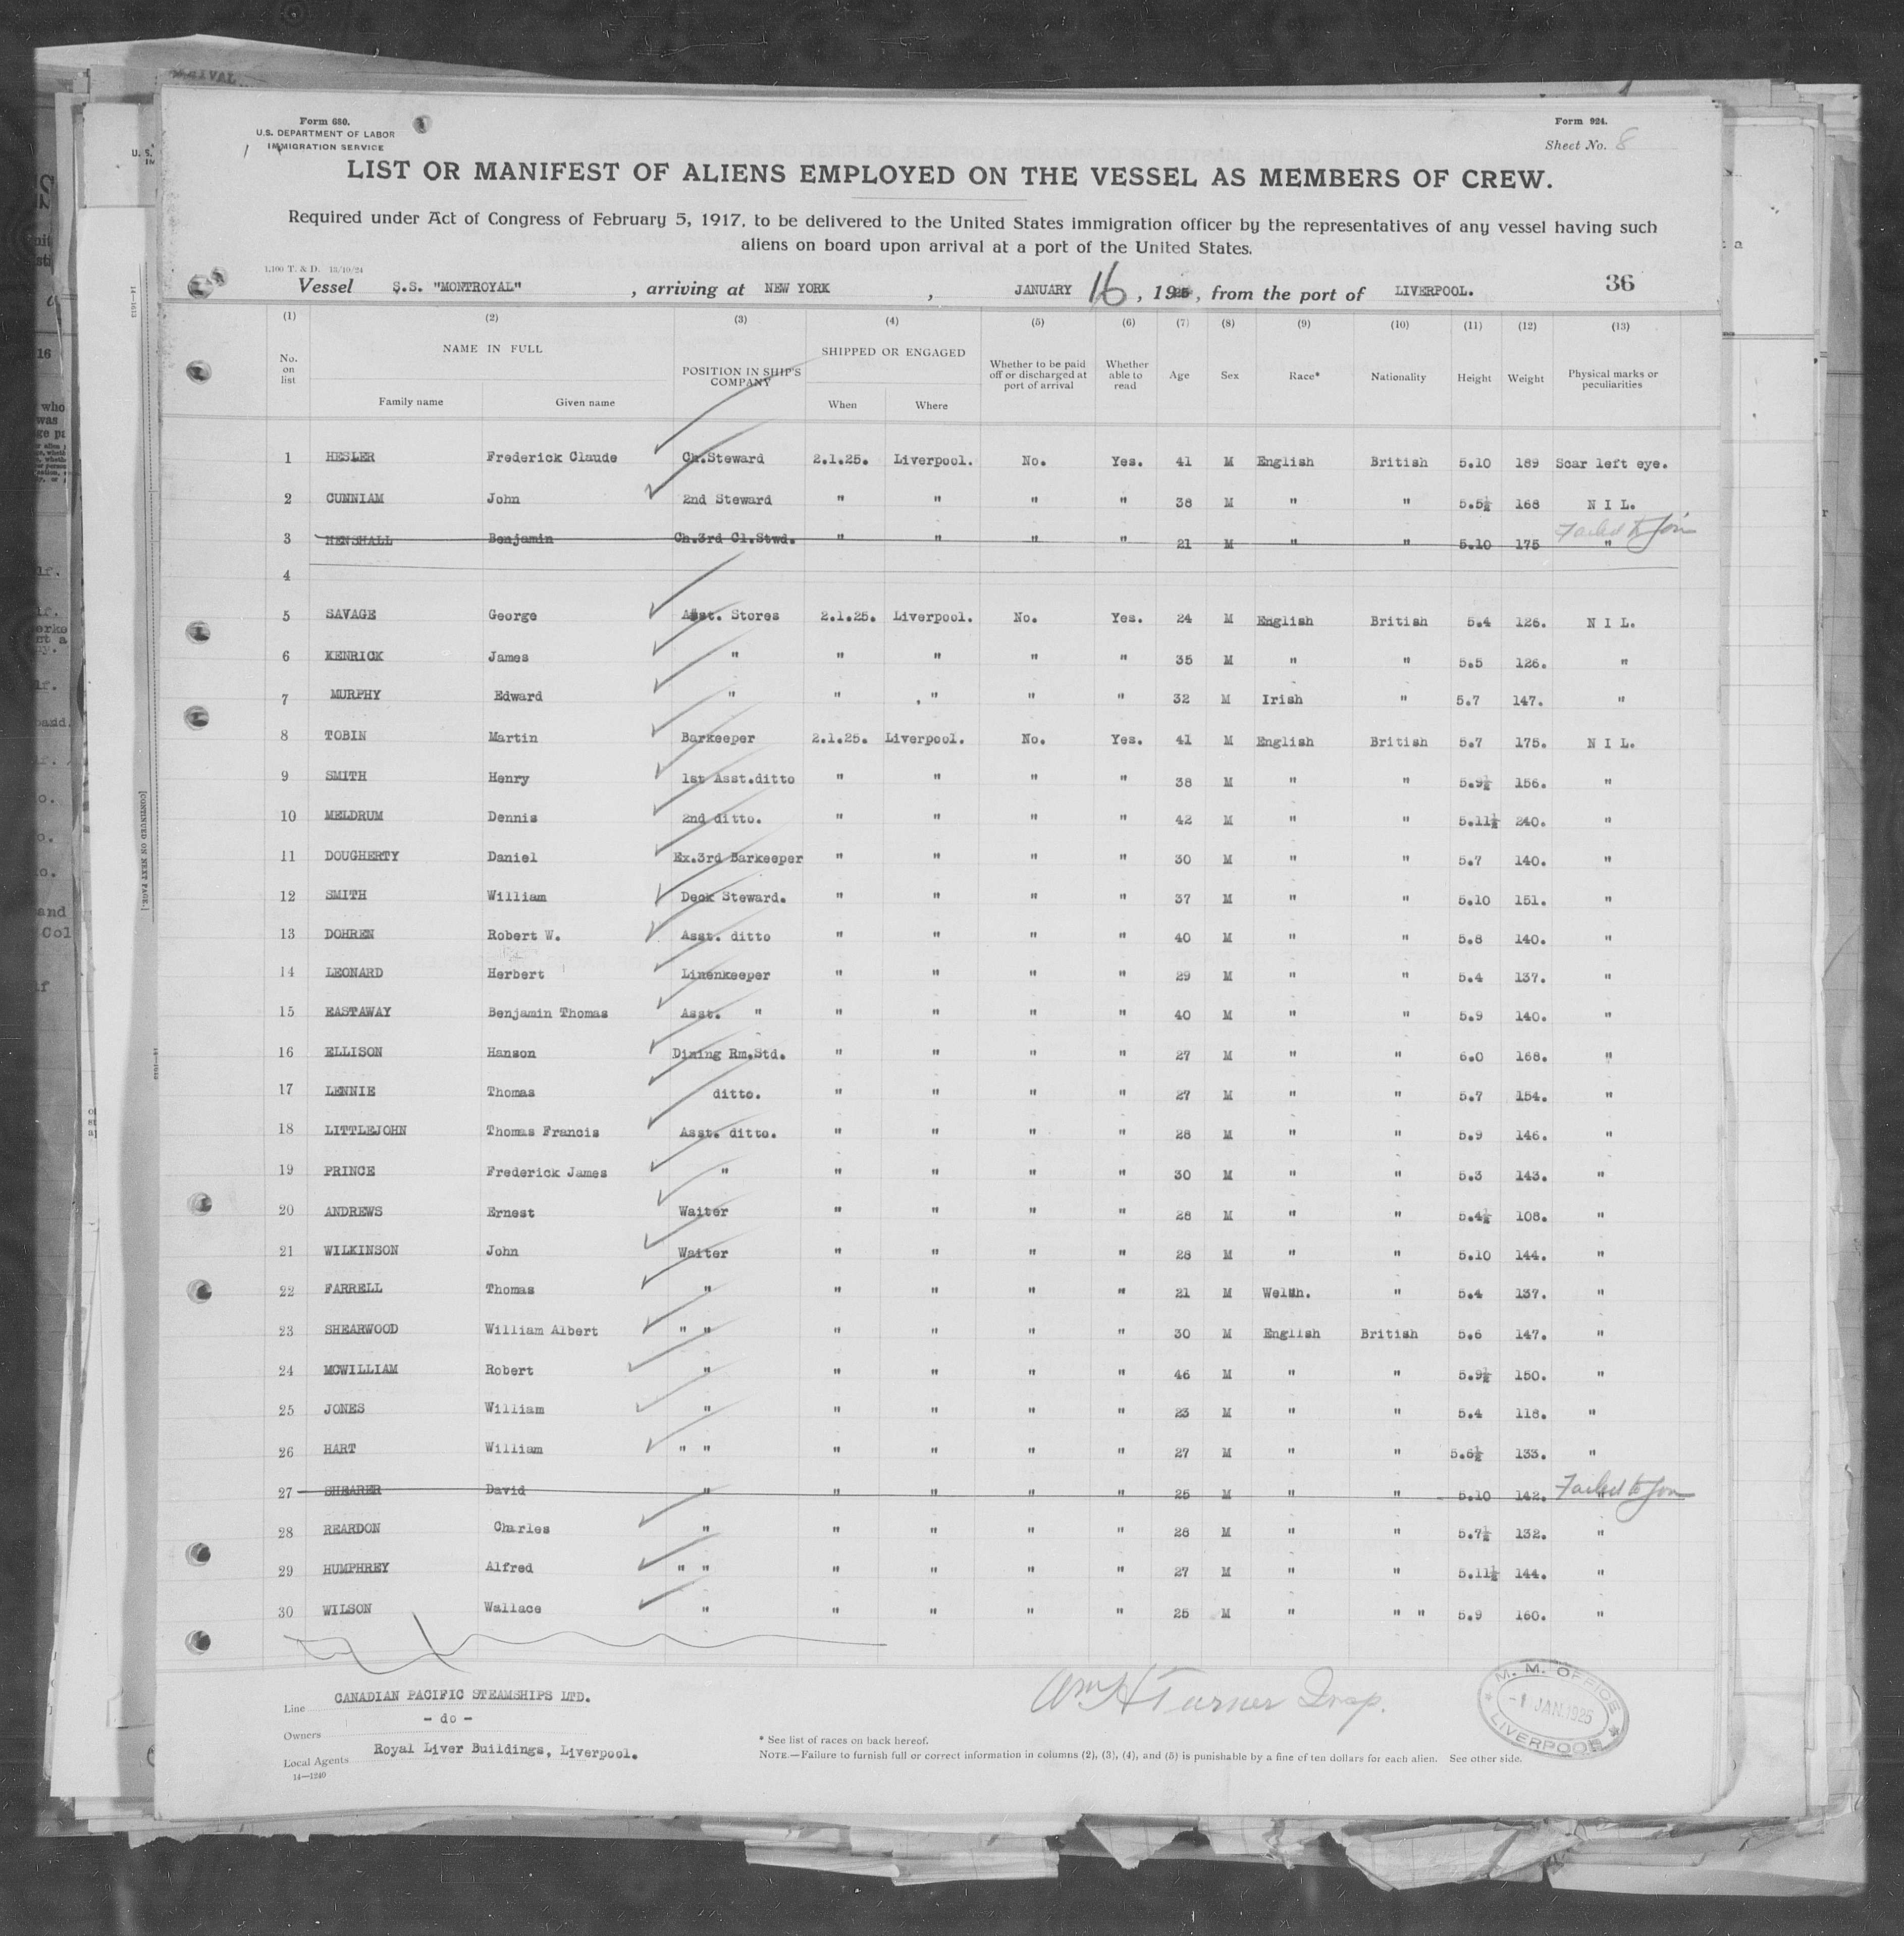 Form 680.
U.S. DEPARTMENT OF LABOR
IMMIGRATION SERVICE
Form 924.
Sheet No. 8
LIST OR MANIFEST OF ALIENS EMPLOYED ON THE VESSEL AS MEMBERS OF CREW.
Required under Act of Congress of February 5, 1917, to be delivered to the United States immigration officer by the representatives of any vessel having such
aliens on board upon arrival at a port of the United States.
1,100 T. & D. 13/10/24
Vessel S.S. "MONTROYAL" , arriving at NEW YORK , JANUARY 16 , 1925, from the port of LIVERPOOL. 36
(1) (2) (3) (4) (5) (6) (7) (8) (9) (10) (11) (12) (13)
No. on list NAME IN FULL Family name Given name POSITION IN SHIP'S COMPANY SHIPPED OR ENGAGED When Where Whether to be paid off or discharged at port of arrival Whether able to read Age Sex Race* Nationality Height Weight Physical marks or peculiarities
1 HESLER Frederick Claude Ch.Steward 2.1.25. Liverpool. No. Yes. 41 M English British 5.10 189 Scar left eye.
2 CUNNIAM John 2nd Steward " " " " 38 M " " 5.5½ 168 N I L.
3 HENSHALL Benjamin Ch.3rd Cl.Stwd. " " " " 21 M " " 5.10 175 " Failed to Join
4
5 SAVAGE George Asst. Stores 2.1.25. Liverpool. No. Yes. 24 M English British 5.4 126. N I L.
6 KENRICK James " " " " " 35 M " " 5.5 126. "
7 MURPHY Edward " " " " " 32 M Irish " 5.7 147. "
8 TOBIN Martin Barkeeper 2.1.25. Liverpool. No. Yes. 41 M English British 5.7 175. N I L.
9 SMITH Henry 1st Asst.ditto " " " " 38 M " " 5.9½ 156. "
10 MELDRUM Dennis 2nd ditto. " " " " 42 M " " 5.11½ 240. "
11 DOUGHERTY Daniel Ex.3rd Barkeeper " " " " 30 M " " 5.7 140. "
12 SMITH William Deck Steward. " " " " 37 M " " 5.10 151. "
13 DOHREN Robert W. Asst. ditto " " " " 40 M " " 5.8 140. "
14 LEONARD Herbert Linenkeeper " " " " 29 M " " 5.4 137. "
15 EASTAWAY Benjamin Thomas Asst. " " " " " 40 M " " 5.9 140. "
16 ELLISON Hanson Dining Rm.Std. " " " " 27 M " " 6.0 168. "
17 LENNIE Thomas ditto. " " " " 27 M " " 5.7 154. "
18 LITTLEJOHN Thomas Francis Asst. ditto. " " " " 28 M " " 5.9 146. "
19 PRINCE Frederick James " " " " " 30 M " " 5.3 143. "
20 ANDREWS Ernest Waiter " " " " 28 M " " 5.4½ 108. "
21 WILKINSON John Waiter " " " " 28 M " " 5.10 144. "
22 FARRELL Thomas " " " " " 21 M Welsh. " 5.4 137. "
23 SHEARWOOD William Albert " " " " " " 30 M English British 5.6 147. "
24 MCWILLIAM Robert " " " " " 46 M " " 5.9½ 150. "
25 JONES William " " " " " 23 M " " 5.4 118. "
26 HART William " " " " " " 27 M " " 5.6½ 133. "
27 SHEARER David " " " " " 25 M " " 5.10 142. " Failed to Join
28 REARDON Charles " " " " " 28 M " " 5.7½ 132. "
29 HUMPHREY Alfred " " " " " " 27 M " " 5.11½ 144. "
30 WILSON Wallace " " " " " 25 M " " " 5.9 160. "
Line CANADIAN PACIFIC STEAMSHIPS LTD.
Owners - do -
Local Agents Royal Liver Buildings, Liverpool.
14—1240
Wm H Turner Insp.
M. M. OFFICE
-1 JAN. 1925
LIVERPOOL
* See list of races on back hereof.
NOTE.—Failure to furnish full or correct information in columns (2), (3), (4), and (5) is punishable by a fine of ten dollars for each alien. See other side.
[CONTINUED ON NEXT PAGE.]